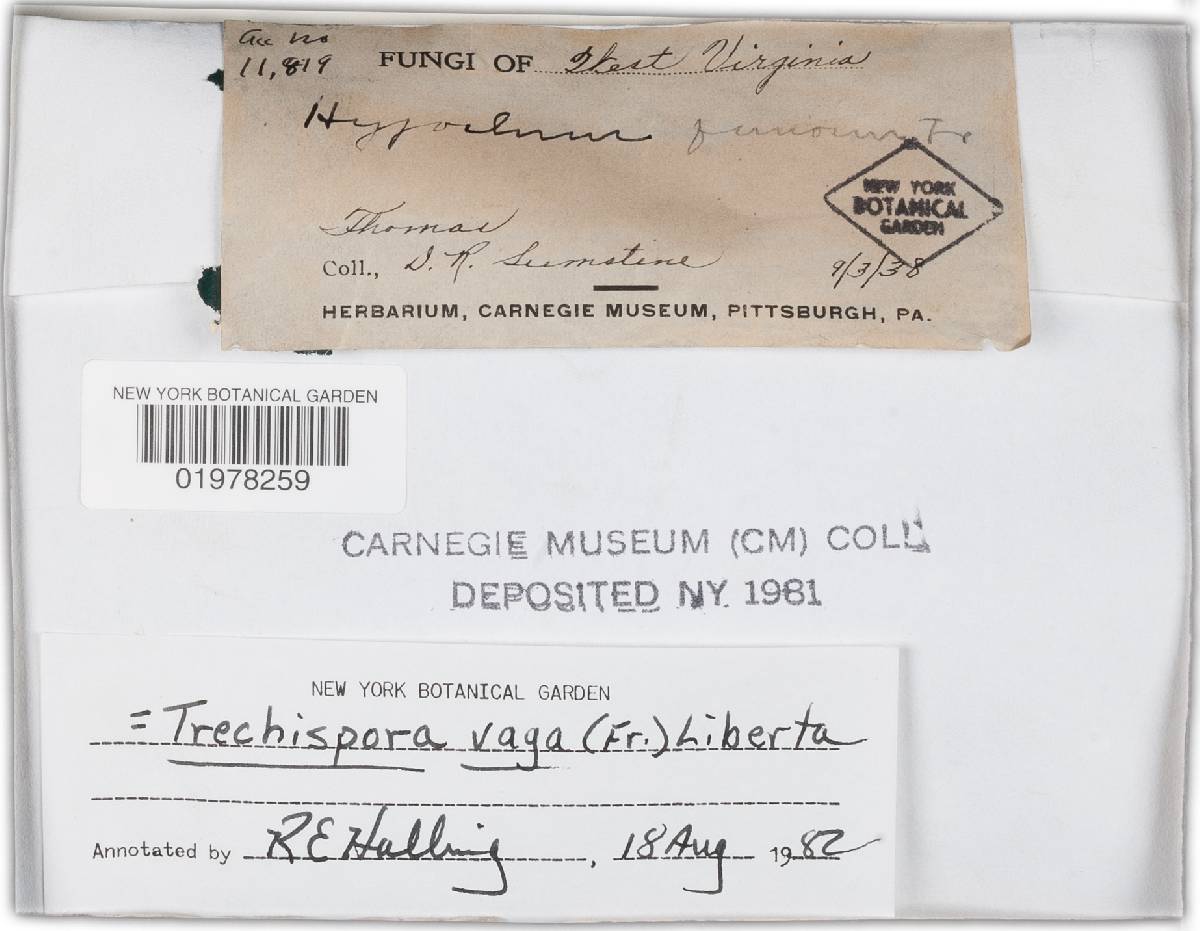 Acc no
11,819
FUNGI OF West Virginia
Hypochnus fumosus Fr
NEW YORK
BOTANICAL
GARDEN
Thomas
Coll., D. R. Sumstine 9/3/38
HERBARIUM, CARNEGIE MUSEUM, PITTSBURGH, PA.
NEW YORK BOTANICAL GARDEN
01978259
CARNEGIE MUSEUM (CM) COLL
DEPOSITED NY 1981
NEW YORK BOTANICAL GARDEN
= Trechispora vaga (Fr.) Liberta
Annotated by R E Halling, 18 Aug 1982